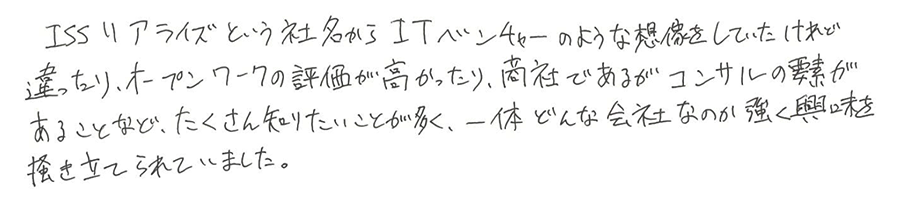 ISSリアライズという社名からITベンチャーのような想像をしていたけれど
違ったり、オープンワークの評価が高かったり、商社であるがコンサルの要素が
あることなど、たくさん知りたいことが多く、一体どんな会社なのか強く興味を
掻き立てられていました。